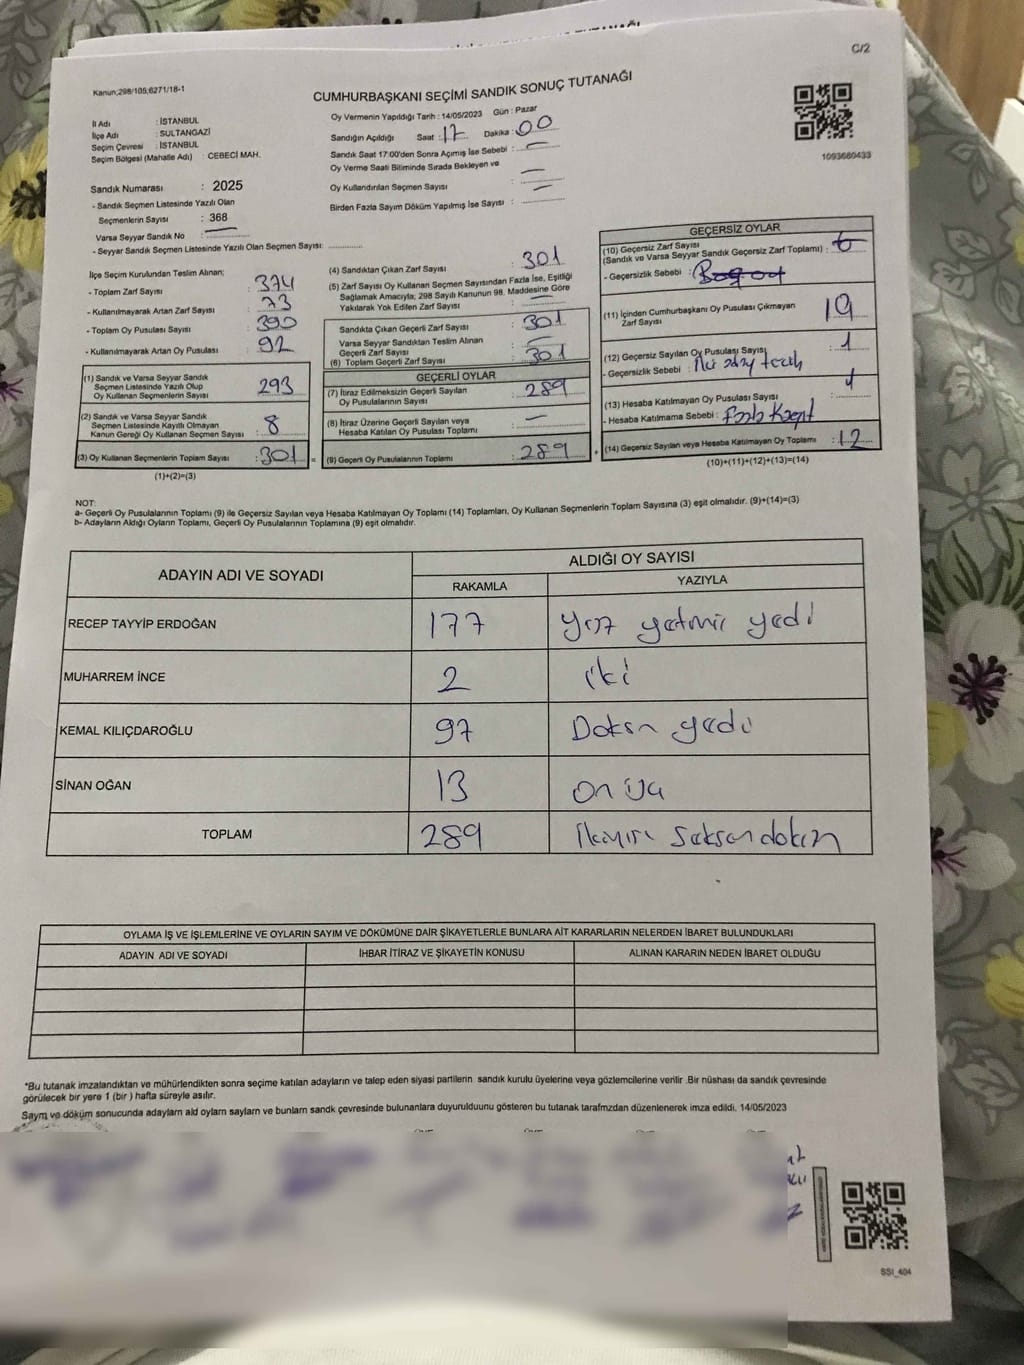 C/2
Kanun;298/105;6271/18-1
CUMHURBAŞKANI SEÇİMİ SANDIK SONUÇ TUTANAĞI
İl Adı : İSTANBUL
İlçe Adı : SULTANGAZİ
Seçim Çevresi : İSTANBUL
Seçim Bölgesi (Mahalle Adı) : CEBECİ MAH.
Sandık Numarası : 2025
- Sandık Seçmen Listesinde Yazılı Olan
Seçmenlerin Sayısı : 368
Varsa Seyyar Sandık No :
- Seyyar Sandık Seçmen Listesinde Yazılı Olan Seçmen Sayısı:
Oy Vermenin Yapıldığı Tarih : 14/05/2023 Gün : Pazar
Sandığın Açıldığı Saat : 17 Dakika : 00
Sandık Saat 17:00'den Sonra Açımış İse Sebebi : —
Oy Verme Saati Bitiminde Sırada Bekleyen ve
Oy Kullandırılan Seçmen Sayısı : —
Birden Fazla Sayım Döküm Yapılmış İse Sayısı : —
1093680433
İlçe Seçim Kurulundan Teslim Alınan;
- Toplam Zarf Sayısı : 374
- Kullanılmayarak Artan Zarf Sayısı : 73
- Toplam Oy Pusulası Sayısı : 390
- Kullanılmayarak Artan Oy Pusulası : 92
(1) Sandık ve Varsa Seyyar Sandık
Seçmen Listesinde Yazılı Olup
Oy Kullanan Seçmenlerin Sayısı : 293
(2) Sandık ve Varsa Seyyar Sandık
Seçmen Listesinde Kayıtlı Olmayan
Kanun Gereği Oy Kullanan Seçmen Sayısı : 8
(3) Oy Kullanan Seçmenlerin Toplam Sayısı : 301 =
(1)+(2)=(3)
(4) Sandıktan Çıkan Zarf Sayısı : 301
(5) Zarf Sayısı Oy Kullanan Seçmen Sayısından Fazla İse, Eşitliği
Sağlamak Amacıyla; 298 Sayılı Kanunun 98. Maddesine Göre
Yakılarak Yok Edilen Zarf Sayısı : —
Sandıkta Çıkan Geçerli Zarf Sayısı : 301
Varsa Seyyar Sandıktan Teslim Alınan
Geçerli Zarf Sayısı : —
(6) Toplam Geçerli Zarf Sayısı : 301
GEÇERLİ OYLAR
(7) İtiraz Edilmeksizin Geçerli Sayılan
Oy Pusulalarının Sayısı : 289
(8) İtiraz Üzerine Geçerli Sayılan veya
Hesaba Katılan Oy Pusulası Toplamı : —
(9) Geçerli Oy Pusulalarının Toplamı : 289 +
GEÇERSİZ OYLAR
(10) Geçersiz Zarf Sayısı
(Sandık ve Varsa Seyyar Sandık Geçersiz Zarf Toplamı) :
- Geçersizlik Sebebi :
(11) İçinden Cumhurbaşkanı Oy Pusulası Çıkmayan
Zarf Sayısı :
(12) Geçersiz Sayılan Oy Pusulası Sayısı : 1
- Geçersizlik Sebebi :
(13) Hesaba Katılmayan Oy Pusulası Sayısı : 1
- Hesaba Katılmama Sebebi :
(14) Geçersiz Sayılan veya Hesaba Katılmayan Oy Toplamı : 12
(10)+(11)+(12)+(13)=(14)
NOT:
a- Geçerli Oy Pusulalarının Toplamı (9) ile Geçersiz Sayılan veya Hesaba Katılmayan Oy Toplamı (14) Toplamları, Oy Kullanan Seçmenlerin Toplam Sayısına (3) eşit olmalıdır. (9)+(14)=(3)
b- Adayların Aldığı Oyların Toplamı, Geçerli Oy Pusulalarının Toplamına (9) eşit olmalıdır.
ADAYIN ADI VE SOYADI
ALDIĞI OY SAYISI
RAKAMLA YAZIYLA
RECEP TAYYİP ERDOĞAN 177 yüz yetmiş yedi
MUHARREM İNCE 2 iki
KEMAL KILIÇDAROĞLU 97 Doksn yedi
SİNAN OĞAN 13 on üç
TOPLAM 289 ikiyüz seksen dokuz
OYLAMA İŞ VE İŞLEMLERİNE VE OYLARIN SAYIM VE DÖKÜMÜNE DAİR ŞİKAYETLERLE BUNLARA AİT KARARLARIN NELERDEN İBARET BULUNDUKLARI
ADAYIN ADI VE SOYADI İHBAR İTİRAZ VE ŞİKAYETİN KONUSU ALINAN KARARIN NEDEN İBARET OLDUĞU
*Bu tutanak imzalandıktan ve mühürlendikten sonra seçime katılan adayların ve talep eden siyasi partilerin sandık kurulu üyelerine veya gözlemcilerine verilir .Bir nüshası da sandık çevresinde
görülecek bir yere 1 (bir ) hafta süreyle asılır.
Sayım ve döküm sonucunda adayların ald oyların sayları ve bunların sandk çevresinde bulunanlara duyurulduunu gösteren bu tutanak tarafmzdan düzenlenerek imza edildi. 14/05/2023
SSI_404